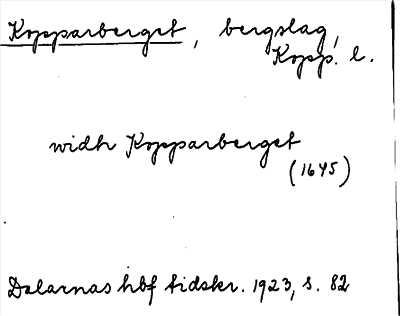 Kopparberget, bergslag,
Kopp. l.
widh Kopparberget
(1645)
Dalarnas hbf tidskr. 1923, s. 82